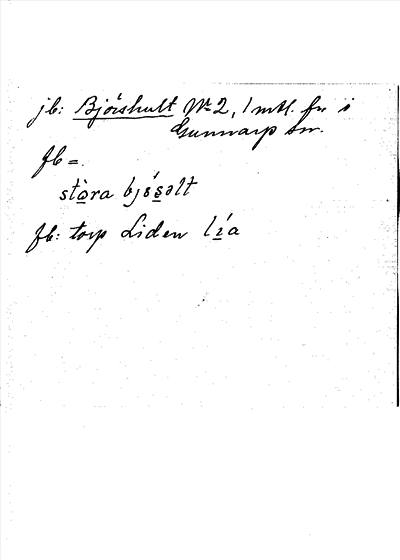 jb: Björshult No 2, 1 mtl. fr i
Gunnarp sn.
fb =
stòra bjǿsəlt
fb: torp Liden lía